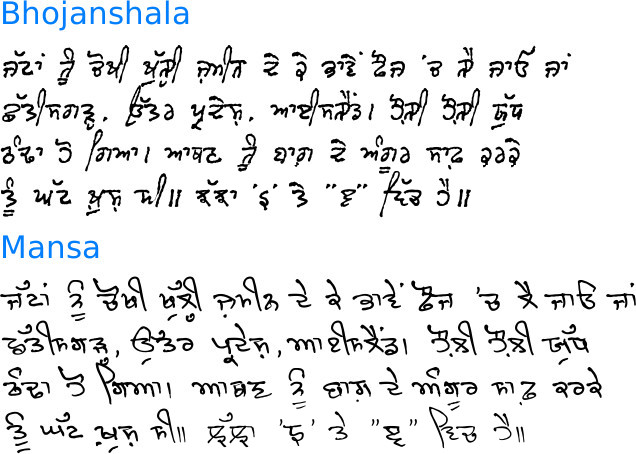 Bhojanshala
ਜੱਟਾਂ ਨੂੰ ਚੋਖੀ ਖੁੱਲ੍ਹੀ ਜ਼ਮੀਨ ਦੇ ਕੇ ਭਾਵੇਂ ਫੌਜ 'ਚ ਲੈ ਜਾਓ ਜਾਂ
ਛੱਤੀਸਗੜ੍ਹ, ਉੱਤਰ ਪ੍ਰਦੇਸ਼, ਆਈਸਲੈਂਡ। ਹੌਲ਼ੀ ਹੌਲ਼ੀ ਯੁੱਧ
ਠੰਢਾ ਹੋ ਗਿਆ। ਆਥਣ ਨੂੰ ਬਾਗ਼ ਦੇ ਅੰਗੂਰ ਸਾਫ਼ ਕਰਕੇ
ਤੂੰ ਘੱਟ ਖ਼ੁਸ਼ ਸੀ॥ ਤੇ ਵਿੱਚ ਹੈ॥
Mansa
ਜੱਟਾਂ ਨੂੰ ਚੋਖੀ ਖੁੱਲ੍ਹੀ ਜ਼ਮੀਨ ਦੇ ਕੇ ਭਾਵੇਂ ਫੌਜ 'ਚ ਲੈ ਜਾਓ ਜਾਂ
ਛੱਤੀਸਗੜ੍ਹ, ਉੱਤਰ ਪ੍ਰਦੇਸ਼, ਆਈਸਲੈਂਡ। ਹੌਲ਼ੀ ਹੌਲ਼ੀ ਯੁੱਧ
ਠੰਢਾ ਹੋ ਗਿਆ। ਆਥਣ ਨੂੰ ਬਾਗ਼ ਦੇ ਅੰਗੂਰ ਸਾਫ਼ ਕਰਕੇ
ਤੂੰ ਘੱਟ ਖ਼ੁਸ਼ ਸੀ॥ ਤੇ ਵਿੱਚ ਹੈ॥